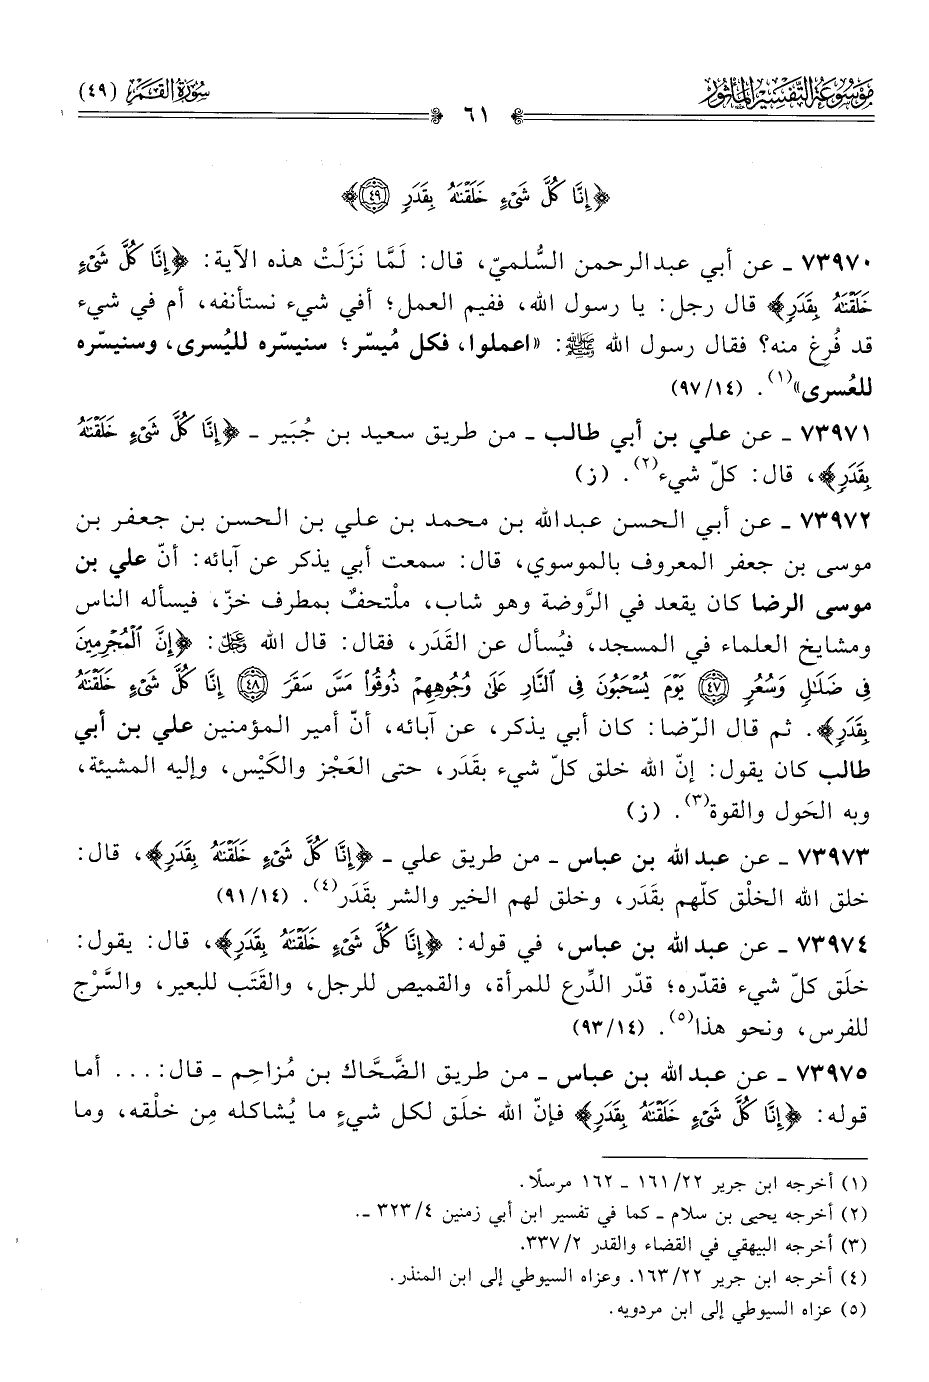 موسوعة التفسير المأثور
سورة القمر (٤٩)
٦١
﴿إِنَّا كُلَّ شَيْءٍ خَلَقْنَٰهُ بِقَدَرٍ ٤٩﴾
٧٣٩٧٠ ـ عن أبي عبدالرحمن السُّلميّ، قال: لَمَّا نَزَلَتْ هذه الآية: ﴿إِنَّا كُلَّ شَيْءٍ
خَلَقْنَٰهُ بِقَدَرٍ﴾ قال رجل: يا رسول الله، ففيم العمل؛ أفي شيء نستأنفه، أم في شيء
قد فُرِغ منه؟ فقال رسول الله ﷺ: «اعملوا، فكل مُيسّر؛ سنيسّره لليُسرى، وسنيسّره
للعُسرى»(١). (٩٧/١٤)
٧٣٩٧١ ـ عن علي بن أبي طالب ـ من طريق سعيد بن جُبَير ـ ﴿إِنَّا كُلَّ شَيْءٍ خَلَقْنَٰهُ
بِقَدَرٍ﴾، قال: كلّ شيء(٢). (ز)
٧٣٩٧٢ ـ عن أبي الحسن عبدالله بن محمد بن علي بن الحسن بن جعفر بن
موسى بن جعفر المعروف بالموسوي، قال: سمعت أبي يذكر عن آبائه: أنّ علي بن
موسى الرضا كان يقعد في الرَّوضة وهو شاب، ملْتحفٌ بمطرف خزّ، فيسأله الناس
ومشايخ العلماء في المسجد، فيُسأل عن القَدَر، فقال: قال الله ﷻ: ﴿إِنَّ ٱلْمُجْرِمِينَ
فِي ضَلَٰلٍ وَسُعُرٍ ٤٧ يَوْمَ يُسْحَبُونَ فِي ٱلنَّارِ عَلَىٰ وُجُوهِهِمْ ذُوقُوا۟ مَسَّ سَقَرَ ٤٨ إِنَّا كُلَّ شَيْءٍ خَلَقْنَٰهُ
بِقَدَرٍ﴾. ثم قال الرّضا: كان أبي يذكر، عن آبائه، أنّ أمير المؤمنين علي بن أبي
طالب كان يقول: إنّ الله خلق كلّ شيء بقَدَر، حتى العَجْز والكَيْس، وإليه المشيئة،
وبه الحَول والقوة(٣). (ز)
٧٣٩٧٣ ـ عن عبد الله بن عباس ـ من طريق علي ـ ﴿إِنَّا كُلَّ شَيْءٍ خَلَقْنَٰهُ بِقَدَرٍ﴾، قال:
خلق الله الخلْق كلّهم بقَدَر، وخلق لهم الخير والشر بقَدَر(٤). (٩١/١٤)
٧٣٩٧٤ ـ عن عبد الله بن عباس، في قوله: ﴿إِنَّا كُلَّ شَيْءٍ خَلَقْنَٰهُ بِقَدَرٍ﴾، قال: يقول:
خلَق كلّ شيء فقدّره؛ قدّر الدِّرع للمرأة، والقميص للرجل، والقَتَب للبعير، والسَّرْج
للفرس، ونحو هذا(٥). (٩٣/١٤)
٧٣٩٧٥ ـ عن عبد الله بن عباس ـ من طريق الضَّحَّاك بن مُزاحِم ـ قال: ... أما
قوله: ﴿إِنَّا كُلَّ شَيْءٍ خَلَقْنَٰهُ بِقَدَرٍ﴾ فإنّ الله خلَق لكل شيءٍ ما يُشاكله مِن خلْقه، وما
(١) أخرجه ابن جرير ٢٢/ ١٦١ ـ ١٦٢ مرسلًا.
(٢) أخرجه يحيى بن سلام ـ كما في تفسير ابن أبي زمنين ٤/ ٣٢٣ ـ.
(٣) أخرجه البيهقي في القضاء والقدر ٢/ ٣٣٧.
(٤) أخرجه ابن جرير ٢٢/ ١٦٣. وعزاه السيوطي إلى ابن المنذر.
(٥) عزاه السيوطي إلى ابن مردويه.